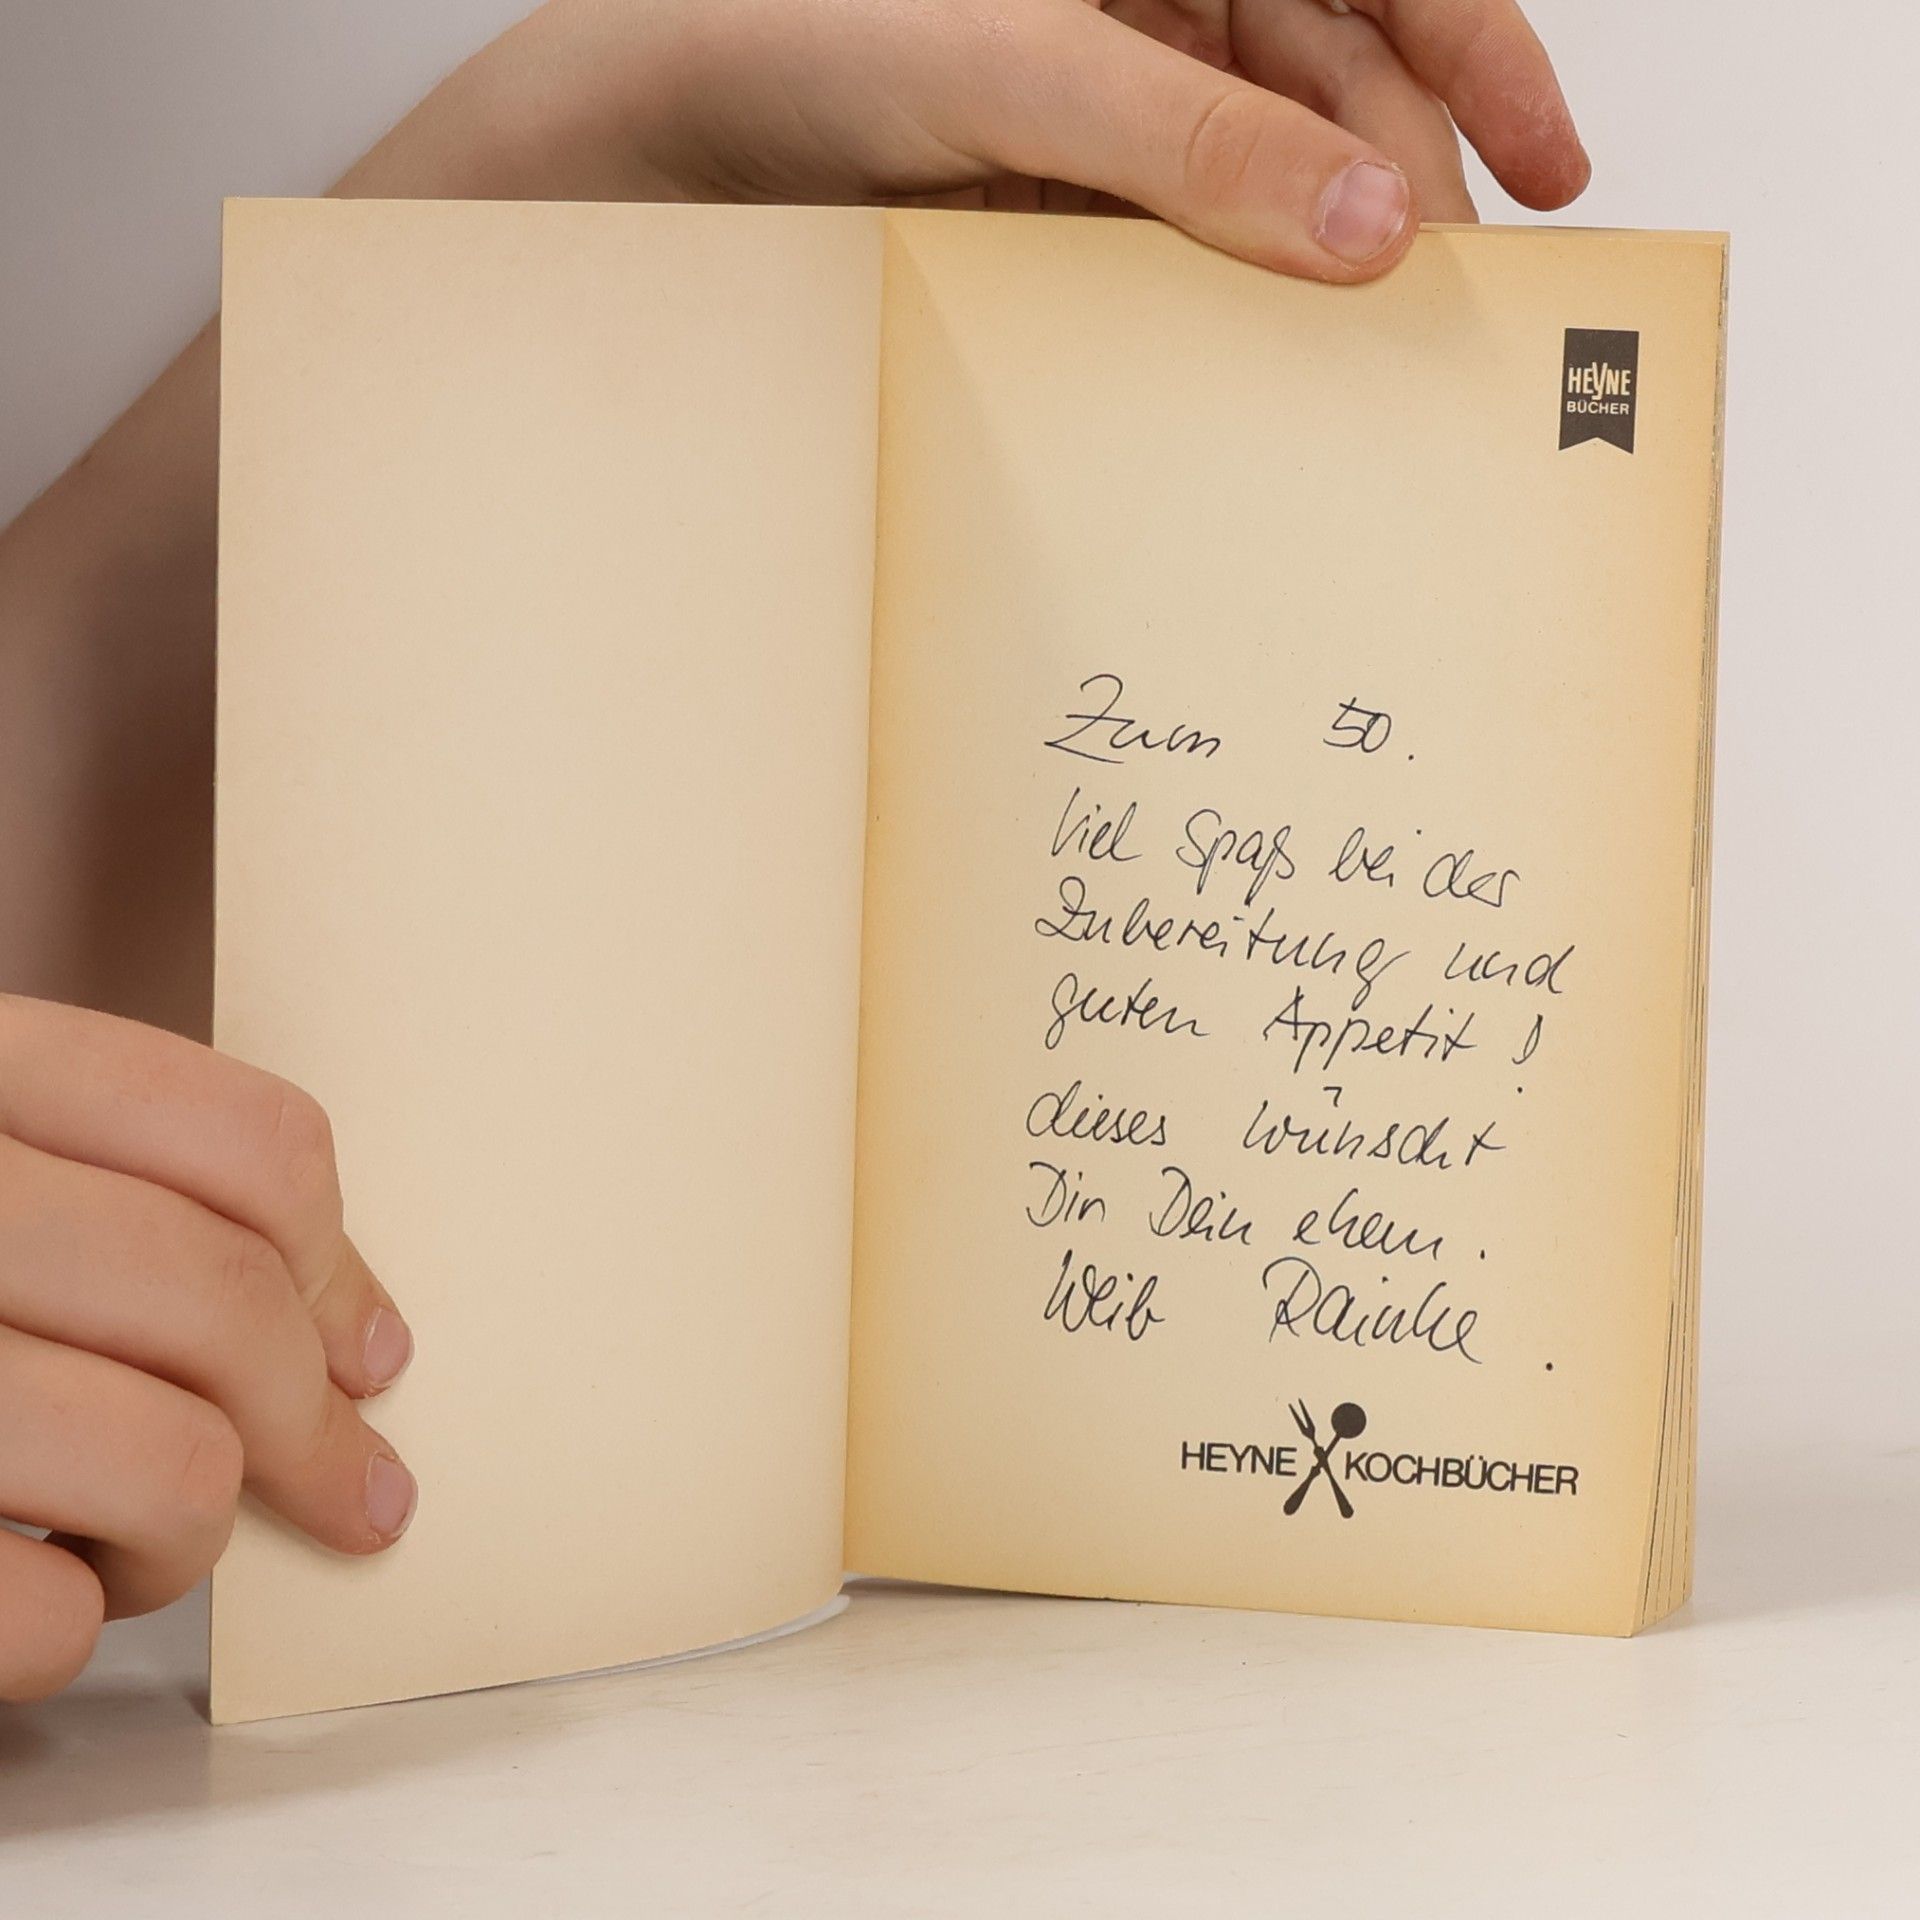 HEYNE
BÜCHER
Zum 50.
Viel Spaß bei der
Zubereitung und
guten Appetit!
dieses wünscht
Dir Dein ehem.
Weib Rainke.
HEYNE KOCHBÜCHER